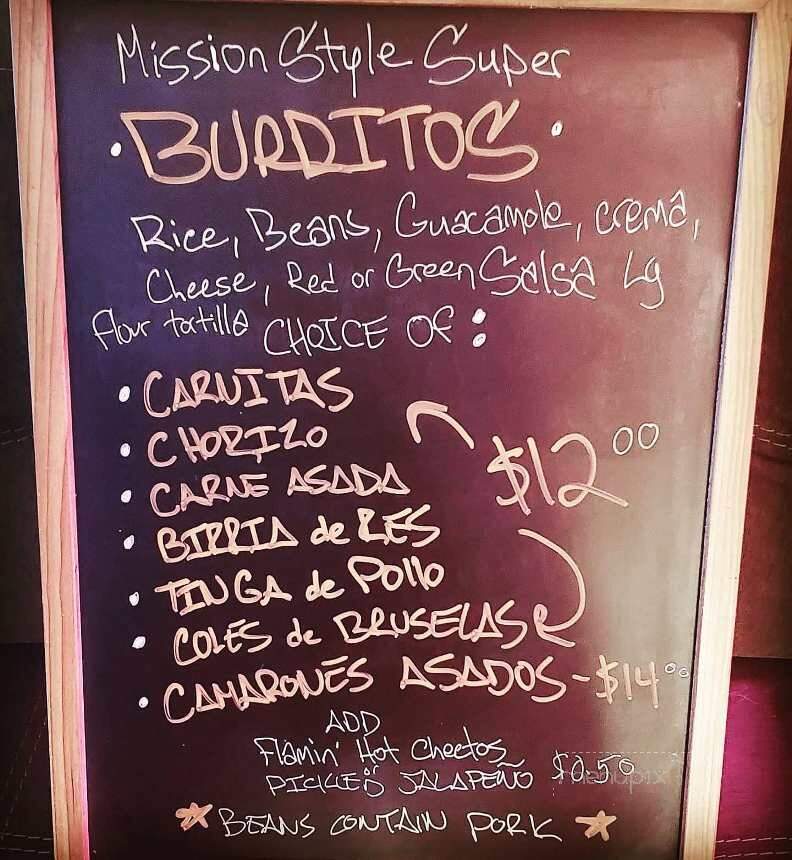 Mission Style Super
• BURRITOS •
Rice, Beans, Guacamole, crema,
Cheese, Red or Green Salsa Lg
flour tortilla CHOICE OF :
• CARNITAS
• CHORIZO
• CARNE ASADA
$12.00
• BIRRIA de RES
• TINGA de Pollo
• COLES de BRUSELAS
• CAMARONES ASADOS - $14.00
ADD
Flamin' Hot Cheetos
or
PICKLED JALAPEÑO $0.50
* BEANS CONTAIN PORK *
menupix